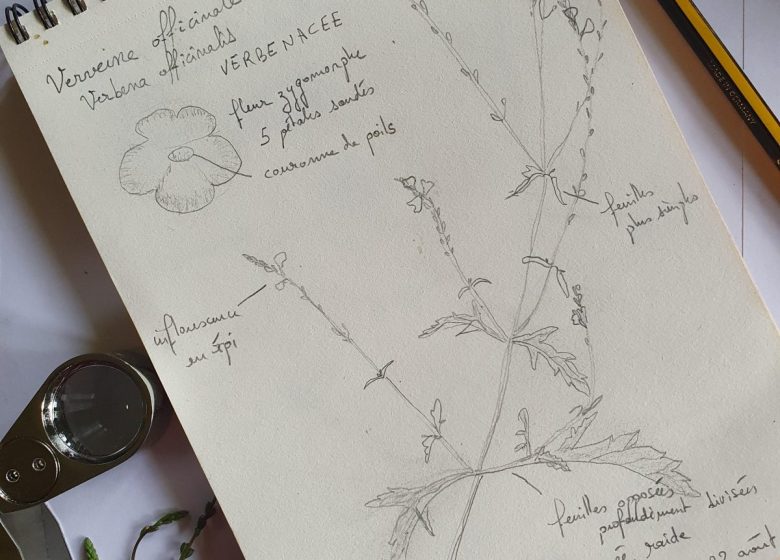 Verveine officinale
Verbena officinalis
VERBENACEE
fleur zygomorphe
5 pétales soudés
couronne de poils
feuilles
plus simples
inflorescence
en épi
feuilles opposées
profondément divisées
raide
août
MADE IN GERMANY